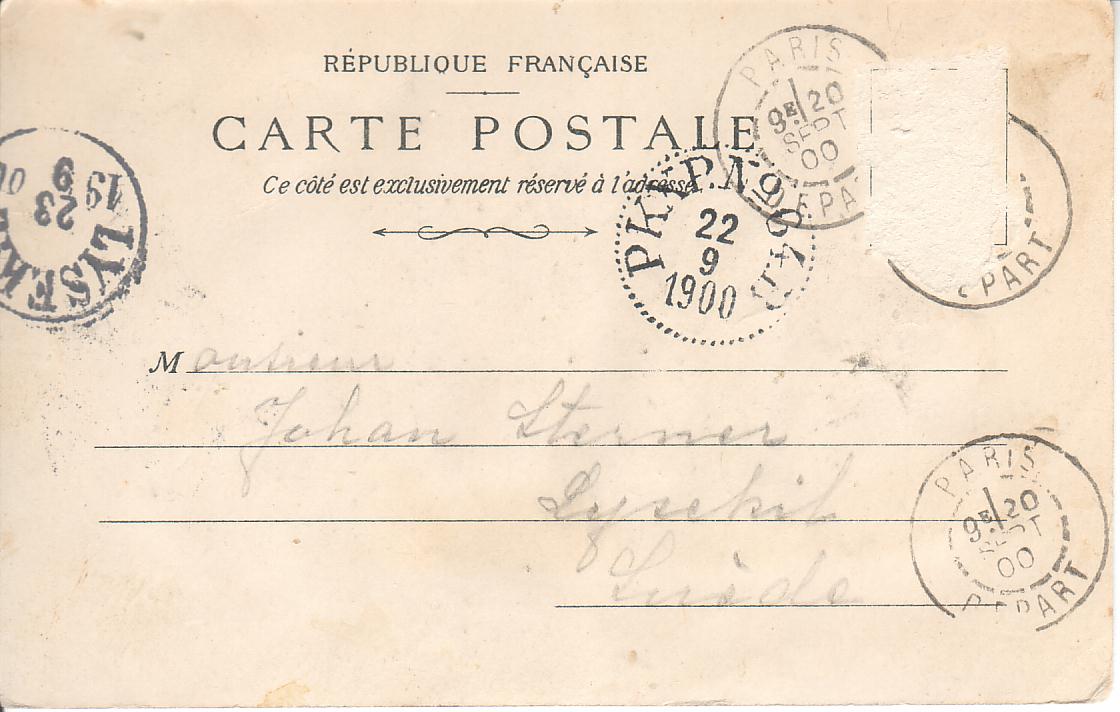 RÉPUBLIQUE FRANÇAISE
CARTE POSTALE
Ce côté est exclusivement réservé à l'adresse
PARIS
9E 20
SEPT
00
DEPART
PARIS
9E 20
SEPT
00
DEPART
PART
PKXP. Nº
22
9
1900
LYSEK
23
9
19
Monsieur
Johan Sterner
Lysekil
Suède